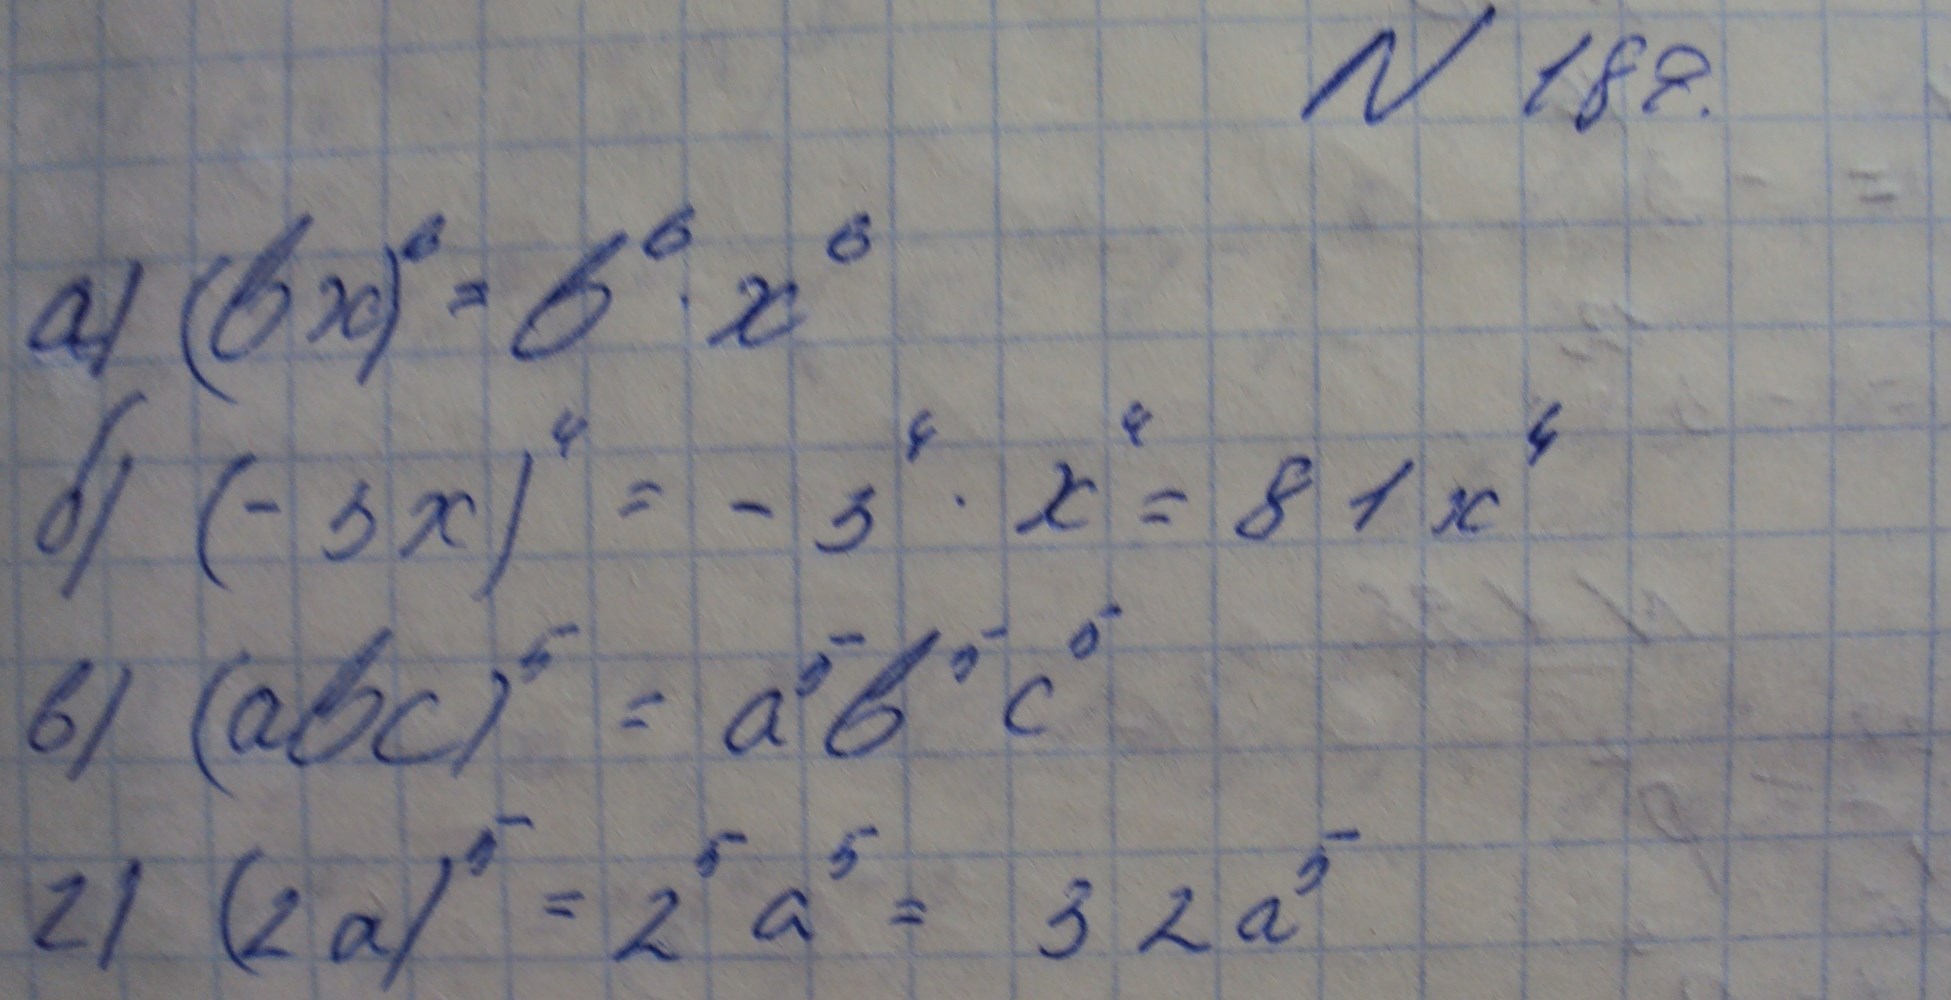 N 187.
а) (bx)⁶ = b⁶ · x⁶
б) (-3x)⁴ = -3⁴ · x⁴ = 81x⁴
в) (abc)⁵ = a⁵b⁵c⁵
г) (2a)⁵ = 2⁵a⁵ = 32a⁵